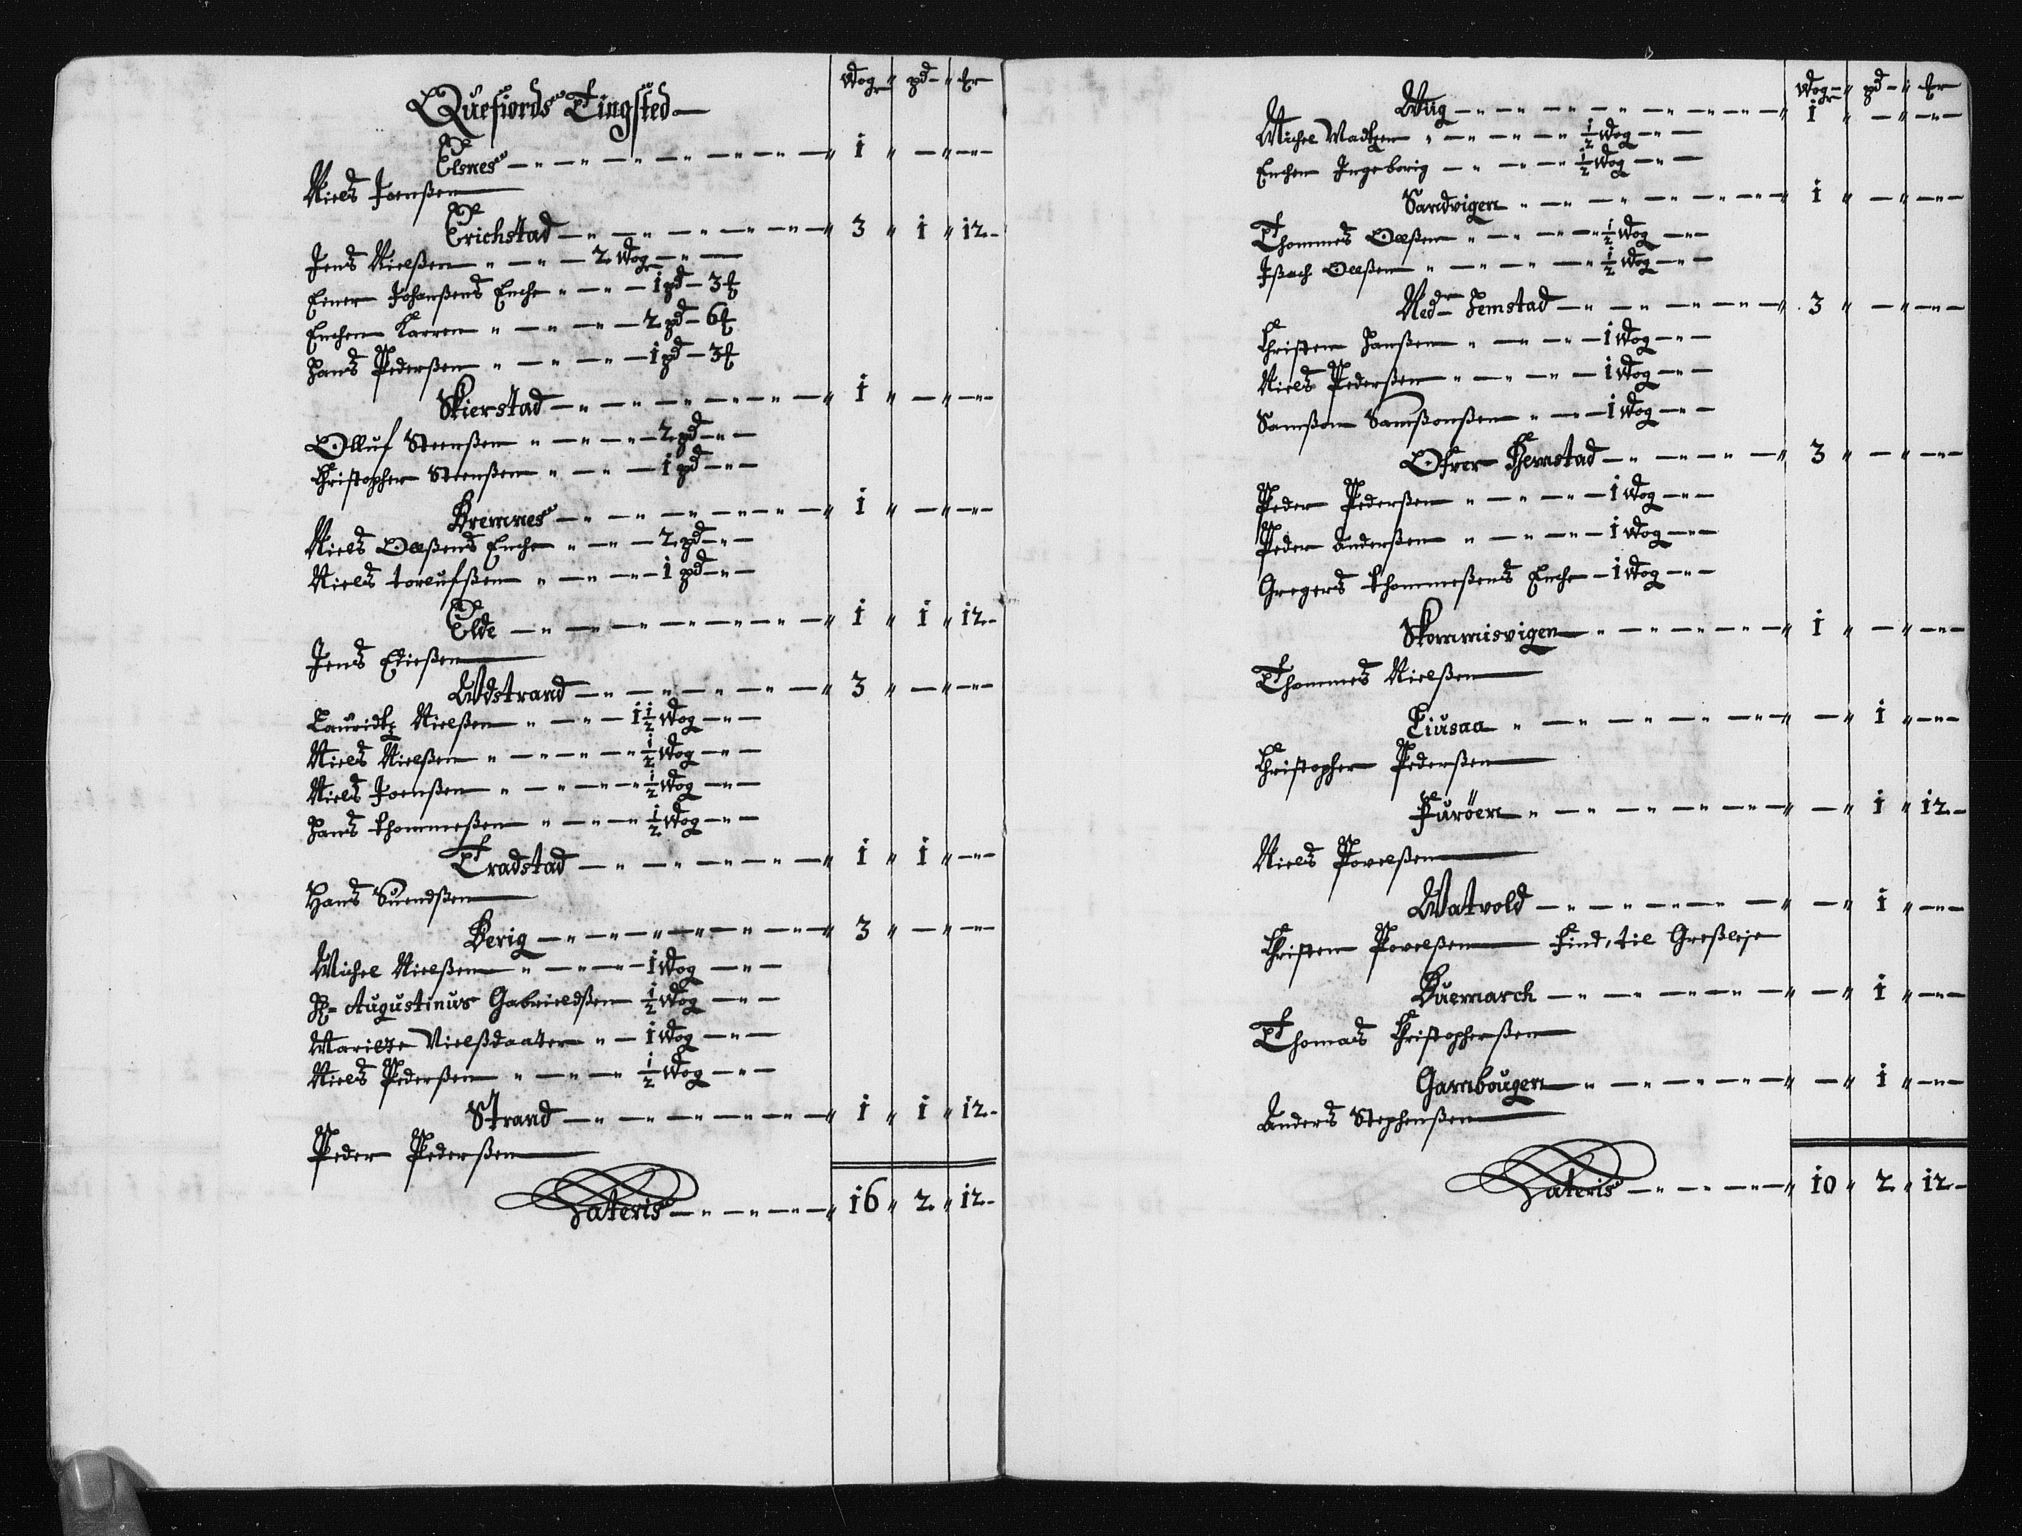 Quefiords Tingsted
Wog " pd " mr
Elsnes — 1 " — " —
Niels Joensßen
Erichstad — 3 " 1 " 12
Jens Nielßen — 2 Wog
Einer Johanßens Enche — 1 pd — 3
Enchen Karren — 2 pd — 6
Hans Pederßen — 1 pd — 3
Skierstad — 1 " — " —
Olluf Steenßen — 2 pd
Christopher Steenßen — 1 pd
Bremnes — 1 " — " —
Niels Olßens Enche — 2 pd
Niels torlufßen — 1 pd
Elde — 1 " 1 " 12
Jens
Udstrand — 3 " — " —
Lauridtz Nielßen — 1½ Wog
Niels Nielßen — ½ Wog
Niels Joenßen — ½ Wog
Hans thommeßen — ½ Wog
Tradstad — 1 " 1 " —
Hans Suendßen
Berig — 3 " — " —
Michel Nielßen — 1 Wog
Hr Augustinus Gabrieldßen ½ Wog
Marite Nielßdaater — 1 Wog
Niels Pederßen — ½ Wog
Strand — 1 " 1 " 12
Peder Pederßen
Lateris — 16 " 2 " 12
Wog " pd " mr
Wiig — 1 " — " —
Michel Madtzen — ½ Wog
Enchen Ingeborig — ½ Wog
Sandvigen — 1 " — " —
Thommes Olßen — ½ Wog
Ißach Olßen — ½ Wog
Nedr Hemstad — 3 " — " —
Christen Hanßen — 1 Wog
Niels Pederßen — 1 Wog
Samßon Samßonßen — 1 Wog
Ofver Hemstad — 3 " — " —
Peder Pederßen — 1 Wog
Peder Anderßen — 1 Wog
Gregers thommeßens Enche — 1 Wog
Skommisvigen — 1 " — " —
Thommes Nielßen
Tiusaa — " 1 " —
Christopher Pederßen
Furöen — " 1 " 12
Niels Povelßen
Watvold — " 1 " —
Christen Povelßen — Find, til Greßleje
Buemarch — " 1 " —
Thomas Christopherßen
Gambougen — " 1 " —
Anders Stephenßen
Lateris — 10 " 2 " 12